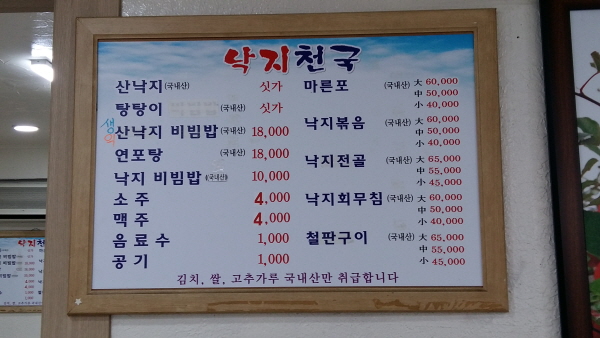 낙지천국
산낙지(국내산) 싯가
탕탕이 (국내산) 싯가
생
산낙지 비빔밥(국내산) 18,000
연포탕 (국내산) 18,000
낙지 비빔밥 (국내산) 10,000
소주 4,000
맥주 4,000
음료수 1,000
공기 1,000
마른포 (국내산) 大 60,000
中 50,000
小 40,000
낙지볶음 (국내산) 大 60,000
中 50,000
小 40,000
낙지전골 (국내산) 大 65,000
中 55,000
小 45,000
낙지회무침 (국내산) 大 60,000
中 50,000
小 40,000
철판구이 (국내산) 大 65,000
中 55,000
小 45,000
김치, 쌀, 고추가루 국내산만 취급합니다
낙지천국